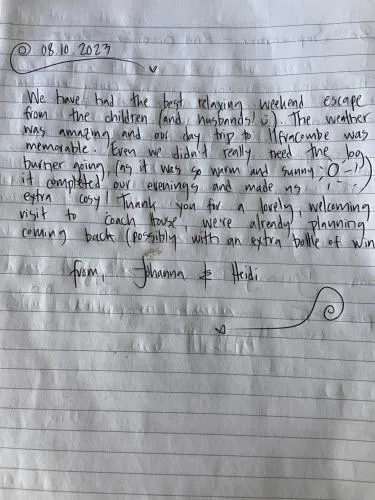 08.10.2023
We have had the best relaxing weekend escape
from the children (and husbands! ☺). The weather
was amazing and our day trip to Ilfracombe was
memorable. Even we didn't really need the log
burner going, (as it was so warm and sunny)
it completed our evenings and made us
extra cosy! Thank you for a lovely, welcoming
visit to coach house, we're already planning
coming back (possibly with an extra bottle of win
from, Johanna & Heidi